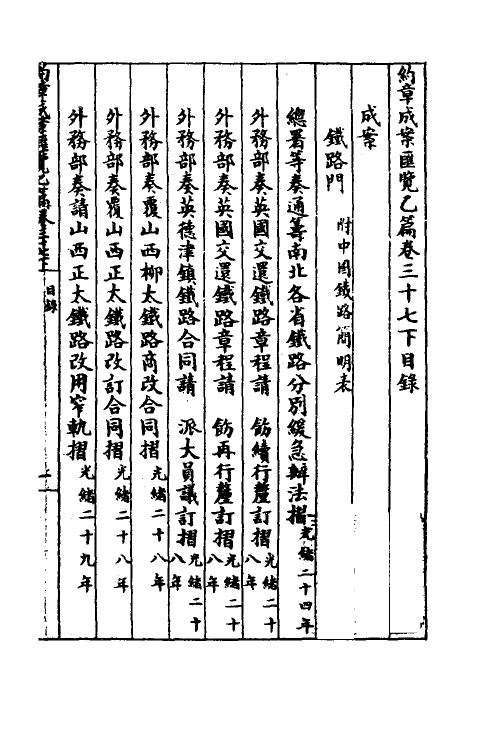 約章成案匯覽乙篇卷三十七下目錄
成案
鐵路門 附中國鐵路簡明表
總署等奏通籌南北各省鐵路分別緩急辦法摺 光緒二十四年
外務部奏英國交還鐵路章程請 飭續行釐訂摺 光緒二十八年
外務部奏英國交還鐵路章程請 飭再行釐訂摺 光緒二十八年
外務部奏英德津鎮鐵路合同請 派大員議訂摺 光緒二十八年
外務部奏覆山西柳太鐵路商改合同摺 光緒二十八年
外務部奏覆山西正太鐵路改訂合同摺 光緒二十八年
外務部奏請山西正太鐵路改用窄軌摺 光緒二十九年
約章成案匯覽乙篇卷三十七下 目錄 一